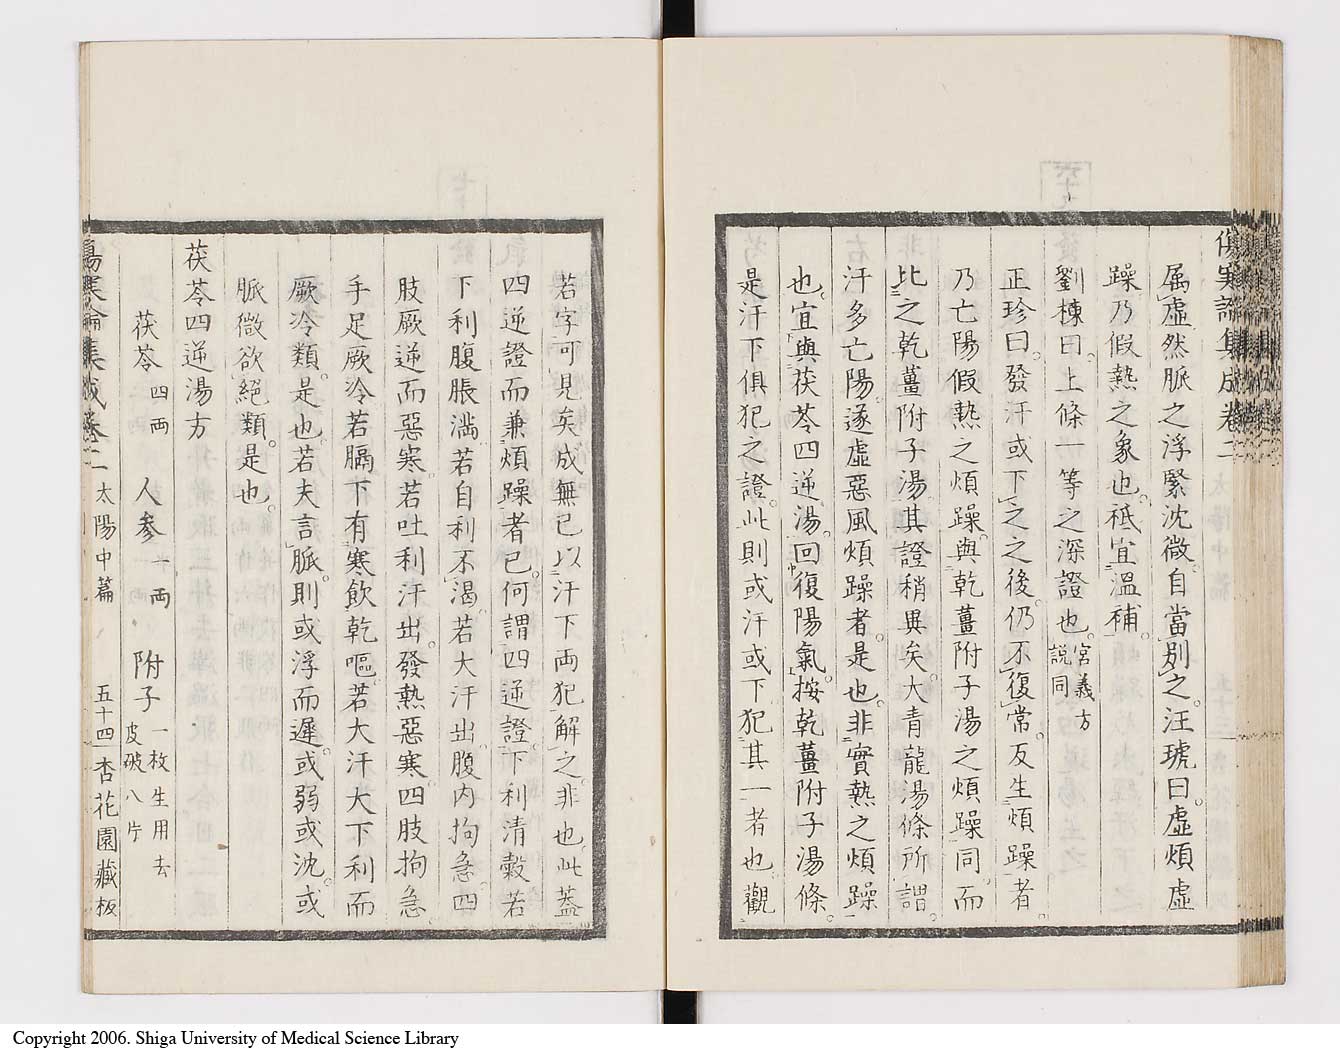 傷寒論集成卷二
属虛然脈之浮緊沈微自當別之汪琥曰虛煩虛
躁乃假熱之象也祗宜溫補
劉棟曰上條一等之深證也宮義方說同
正珍曰發汗或下之之後仍不復常反生煩躁者
乃亡陽假熱之煩躁與乾薑附子湯之煩躁同而
比之乾薑附子湯其證稍異矣大青龍湯條所謂
汗多亡陽遂虛惡風煩躁者是也非實熱之煩躁
也宜與茯苓四逆湯回復陽氣按乾薑附子湯條
是汗下俱犯之證此則或汗或下犯其一者也觀
若字可見矣成無已以汗下兩犯解之非也此蓋
四逆證而兼煩躁者已何謂四逆證下利清穀若
下利腹脹滿若自利不渴若大汗出腹內拘急四
肢厥逆而惡寒若吐利汗出發熱惡寒四肢拘急
手足厥冷若膈下有寒飲乾嘔若大汗大下利而
厥冷類是也若夫言脈則或浮而遲或弱或沈或
脈微欲絕類是也
茯苓四逆湯方
茯苓四兩 人參一兩 附子一枚生用去皮破八片
傷寒論集成卷二 太陽中篇 五十四 杏花園藏板
Copyright 2006. Shiga University of Medical Science Library